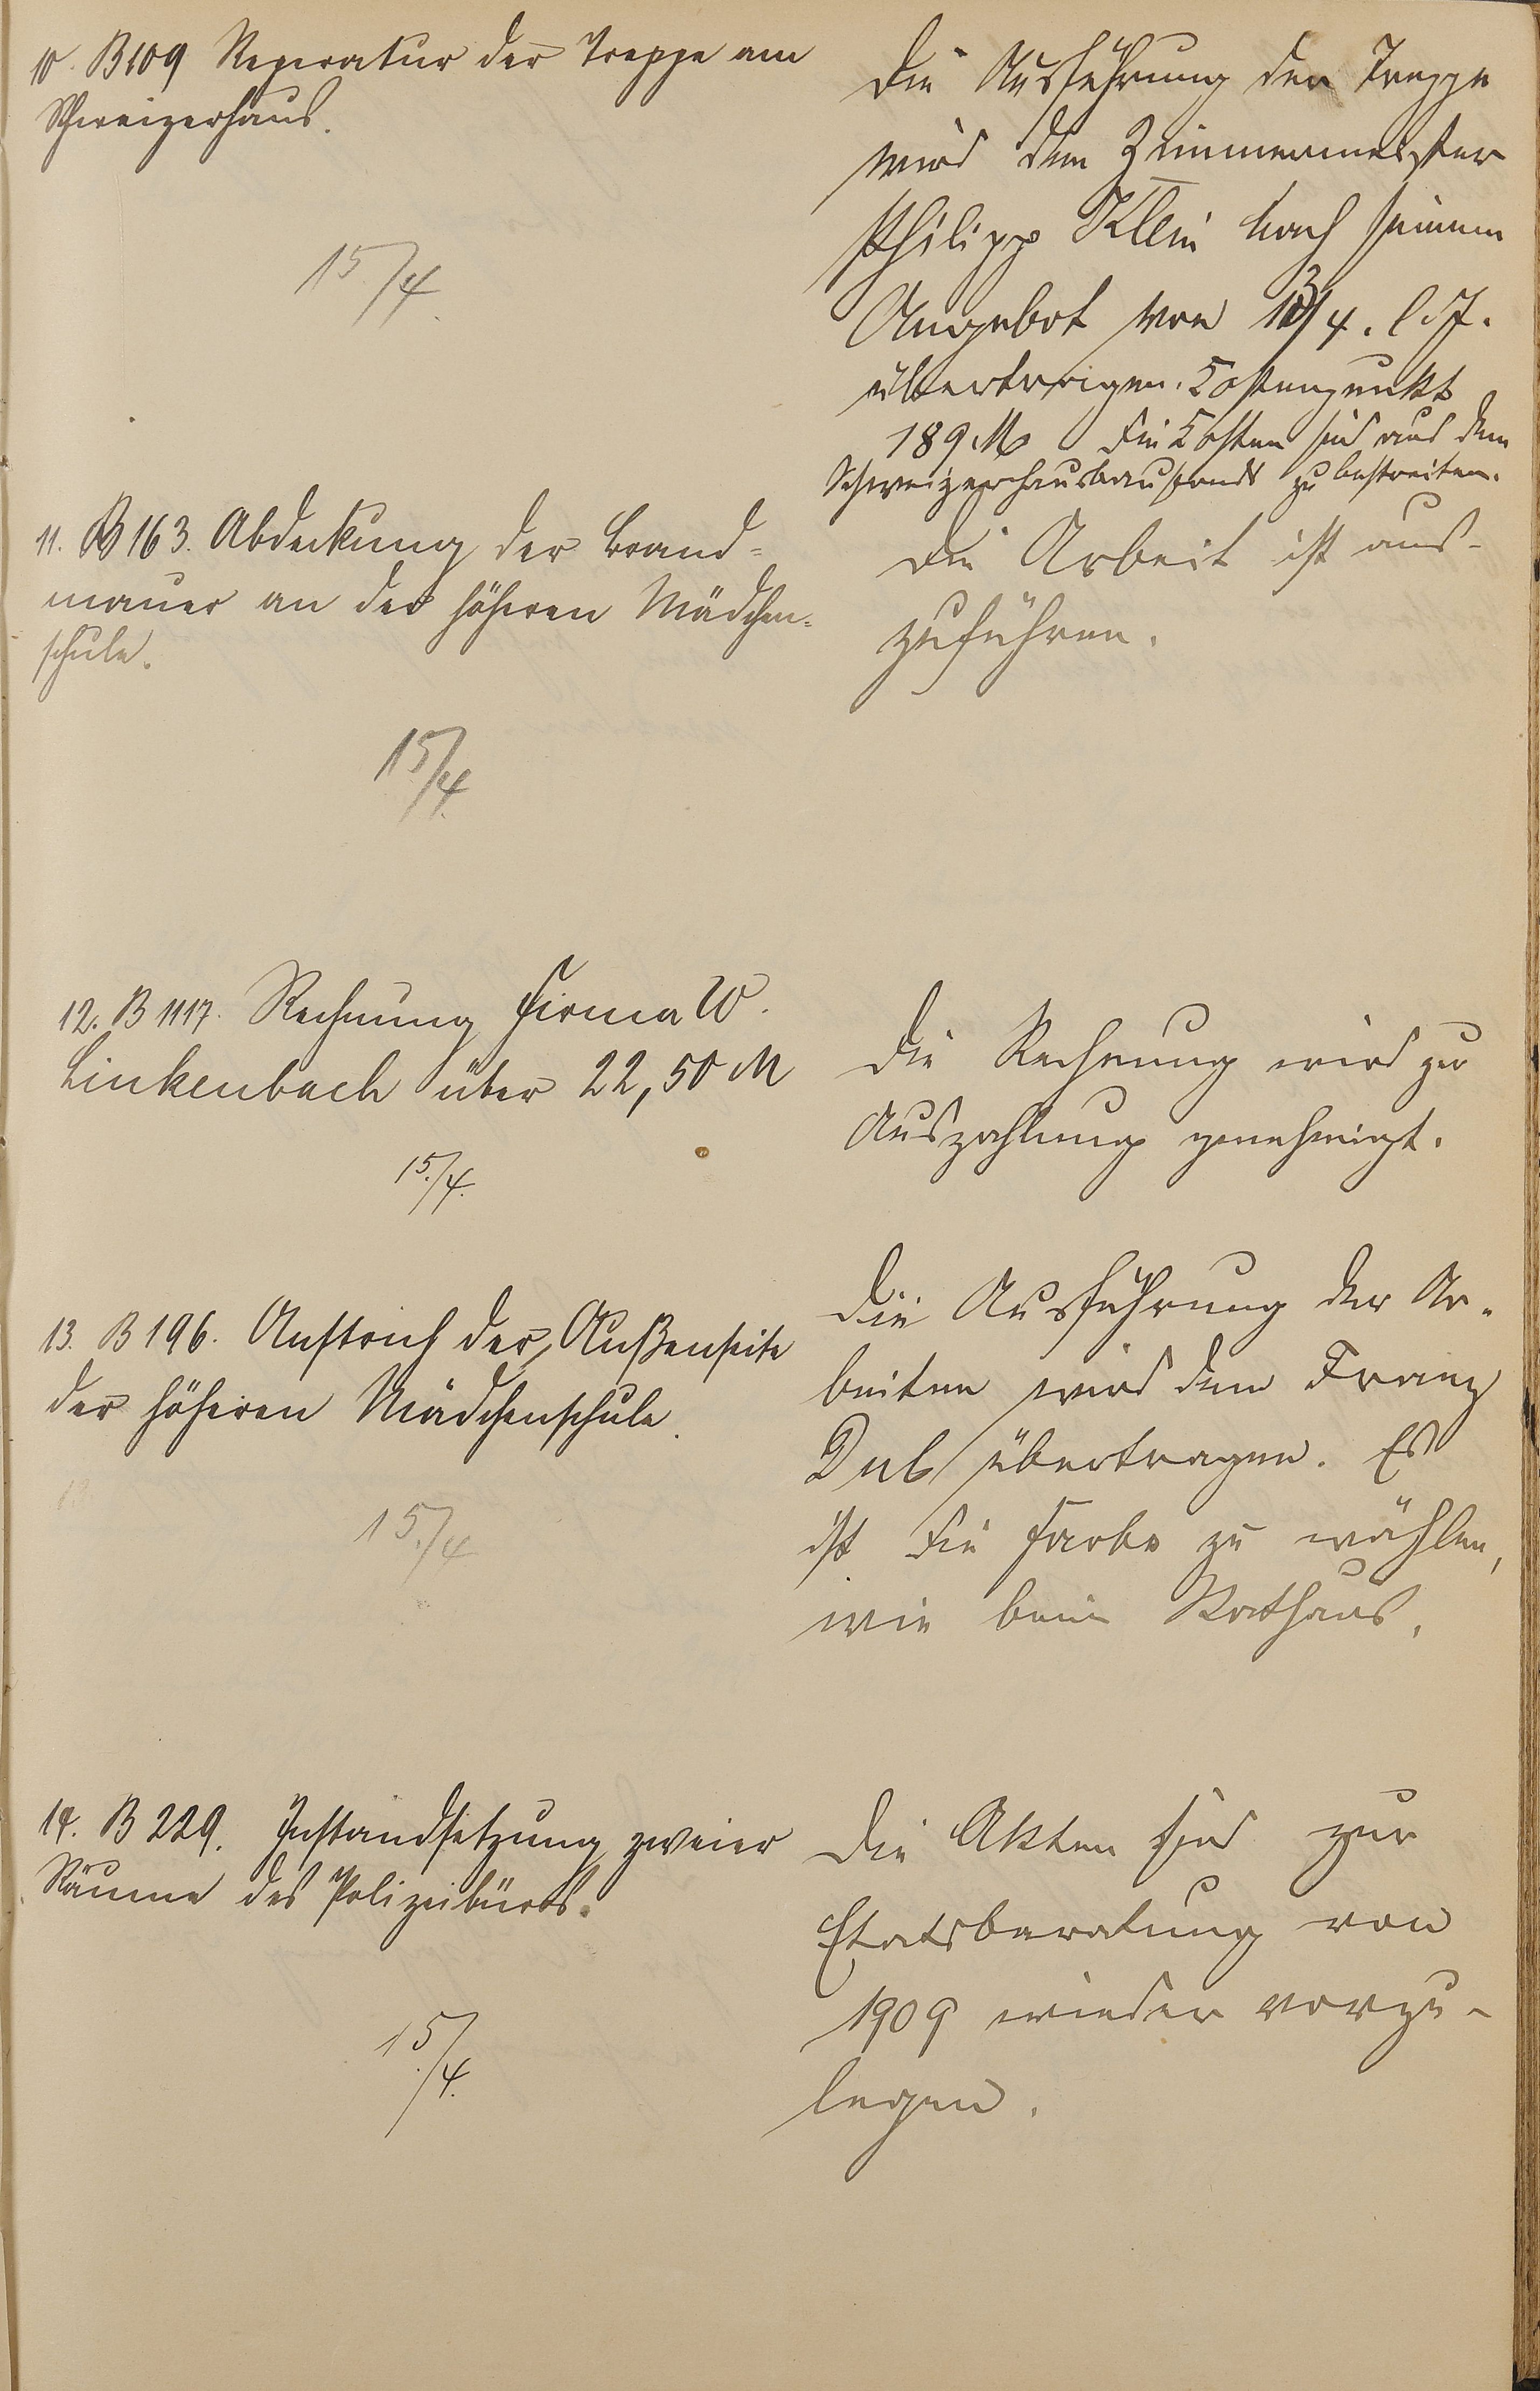 10. B109 Reparatur der Treppe am
Schweizerhaus.
15./4.
Die Ausführung der Treppe
wird dem Zimmermeister
Philipp Klein nach seinem
Angebot von 13/4. l. J.
übertragen. Kostenpunkt
189 M Die Kosten sind aus dem
Schweizerhausbaufonds zu bestreiten.
11. B 163. Abdeckung der Brand=
mauer an der höheren Mädchen=
schule.
15./4.
Die Arbeit ist aus-
zuführen.
12. B 1117. Rechnung Firma W.
Linkenbach über 22,50 M
15./4.
Die Rechnung wird zur
Auszahlung genehmigt.
13. B 196. Anstrich der Außenseite
der höheren Mädchenschule.
15./4
Die Ausführung der Ar-
beiten wird dem Franz
übertragen. Es
ist die Farbe zu wählen,
wie beim Rathaus.
14. B 229. Instandsetzung zweier
Räume des Polizeibüros.
15./4.
Die Akten sind zur
Etatsberatung von
1909 wieder vorzu-
legen.